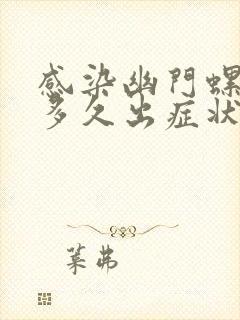 感染幽門螺
多久出症狀
葉弗